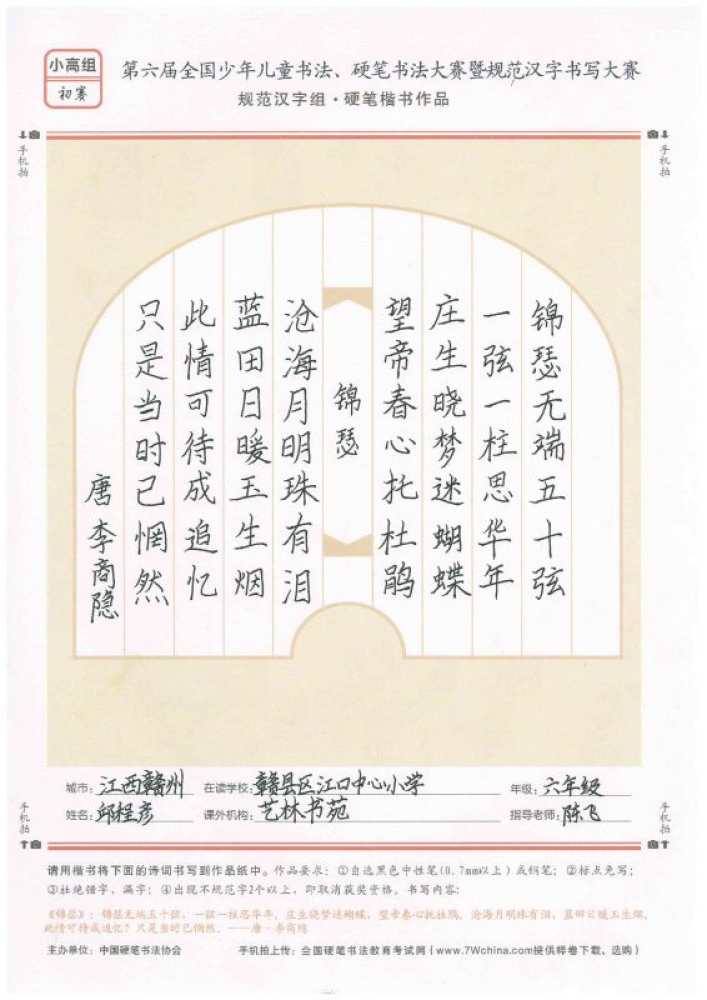 小高组
初赛
第六届全国少年儿童书法、硬笔书法大赛暨规范汉字书写大赛
规范汉字组·硬笔楷书作品
手机拍
手机拍
锦瑟无端五十弦
一弦一柱思华年
庄生晓梦迷蝴蝶
望帝春心托杜鹃
锦瑟
沧海月明珠有泪
蓝田日暖玉生烟
此情可待成追忆
只是当时已惘然
唐李商隐
城市：江西赣州 在读学校：赣县区江口中心小学 年级：六年级
姓名：邱程彦 课外机构：艺林书苑 指导老师：陈飞
手机拍
手机拍
请用楷书将下面的诗词书写到作品纸中。作品要求：①自选黑色中性笔(0.7mm以上）或钢笔；②标点免写；
③杜绝错字、漏字；④出现不规范字2个以上，即取消获奖资格。书写内容：
《锦瑟》：锦瑟无端五十弦，一弦一柱思华年。庄生晓梦迷蝴蝶，望帝春心托杜鹃。沧海月明珠有泪，蓝田日暖玉生烟。
此情可待成追忆？只是当时已惘然。——唐·李商隐
主办单位：中国硬笔书法协会 手机拍上传：全国硬笔书法教育考试网（www.7Wchina.com提供样卷下载、选购）